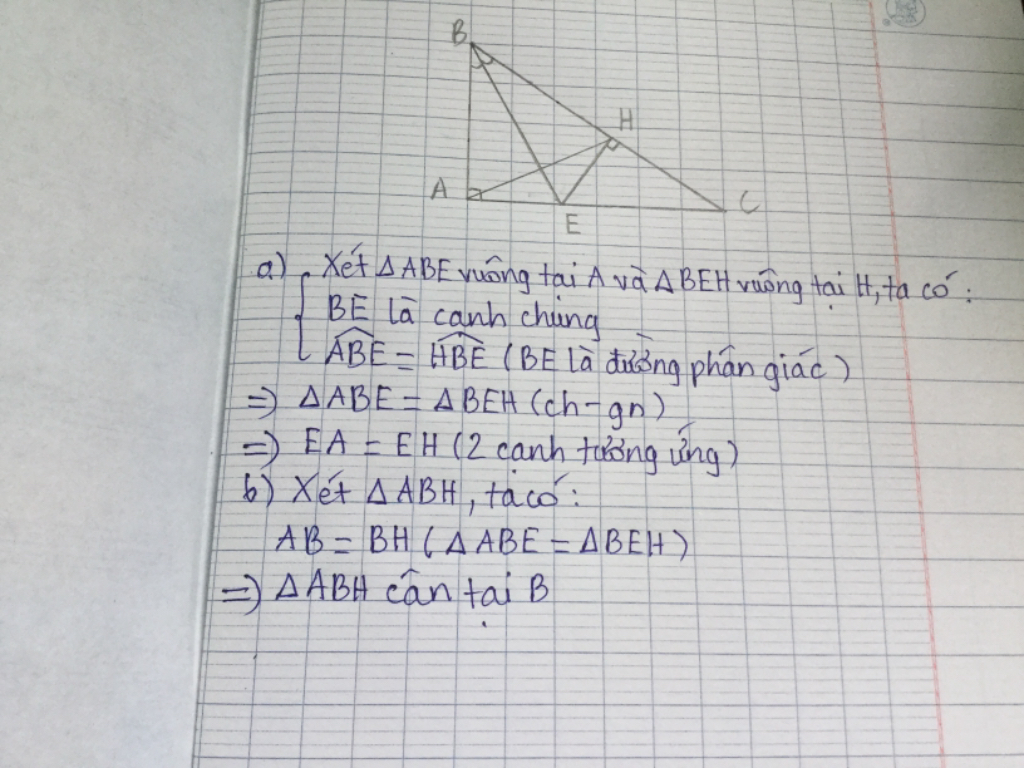 B
H
A
E
C
a) Xét ΔABE vuông tại A và ΔBEH vuông tại H, ta có:
BE là cạnh chung
ABE = HBE (BE là đường phân giác)
=> ΔABE = ΔBEH (ch-gn)
=> EA = EH (2 cạnh tương ứng)
b) Xét ΔABH, ta có:
AB = BH (ΔABE = ΔBEH)
=> ΔABH cân tại B